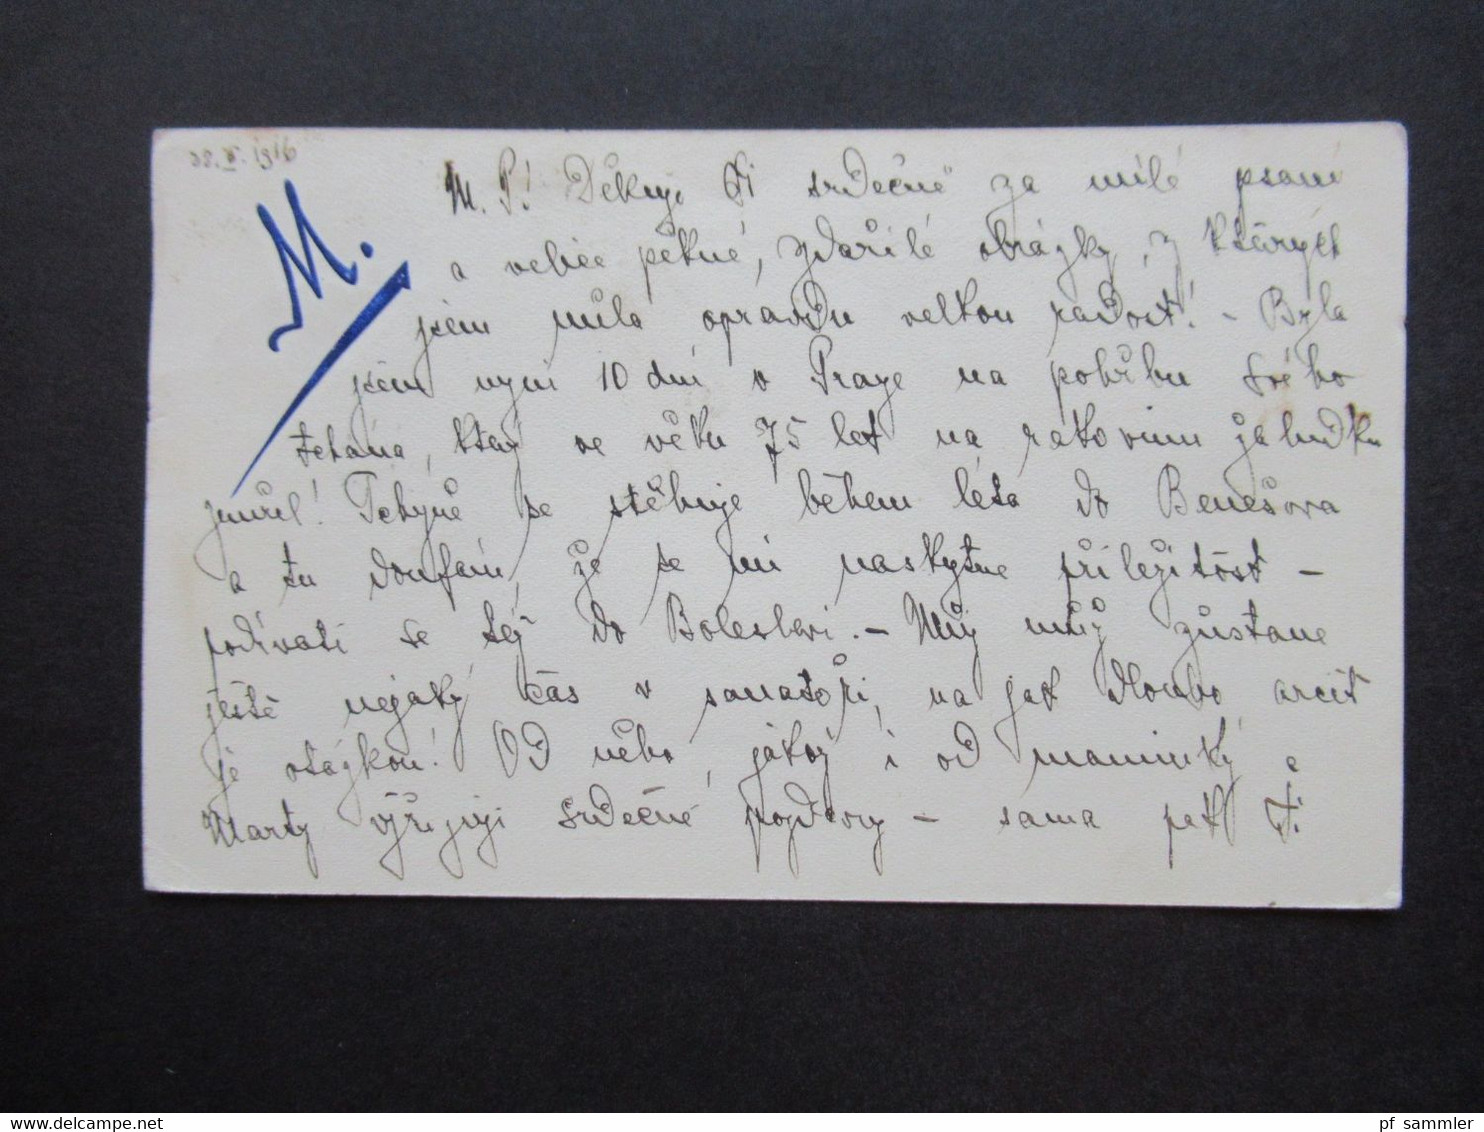 28. V. 1916
M.
M. P! Děkuji Ti srdečně za milé psaní
a velice pěkné, zdařilé obrázky, z kterých
jsem měla opravdu velkou radost! – Byla
jsem nyní 10 dní v Praze na pohřbu svého
tchána, který ve věku 75 let na rakovinu žaludku
zemřel! Tchýně se stěhuje během léta do Benešova
a tu doufám, že se mi naskytne příležitost –
podívati se též do Boleslavi. – Můj muž zůstane
ještě nějaký čas v sanatoři, na jak dlouho arciť
je otázkou! Od něho, jakož i od maminky a
Marty vyřizuji srdečné pozdravy – sama pak Ti
pf_sammler
www.delcampe.net